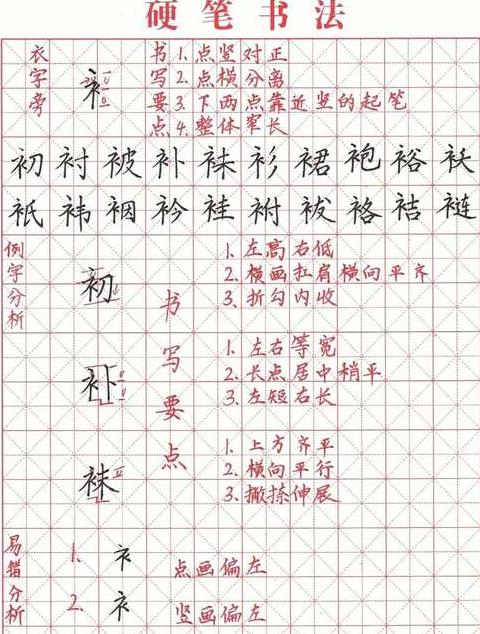 硬笔书法
衣字旁
衤
书写要点
1. 点竖对正
2. 点横分离
3. 下两点靠近竖的起笔
4. 整体窄长
初 衬 被 补 袜 衫 裙 袍 裕 袄
祗 袆 裀 衿 袿 袝 袚 袼 袺 裢
例字分析
初
书写要点
1. 左高右低
2. 横画扛肩横向平齐
3. 折勾内收
补
1. 左右等宽
2. 长点居中稍平
3. 左短右长
袜
1. 上方齐平
2. 横向平行
3. 撇捺伸展
易错分析
1. 衤 点画偏左
2. 衤 竖画偏左